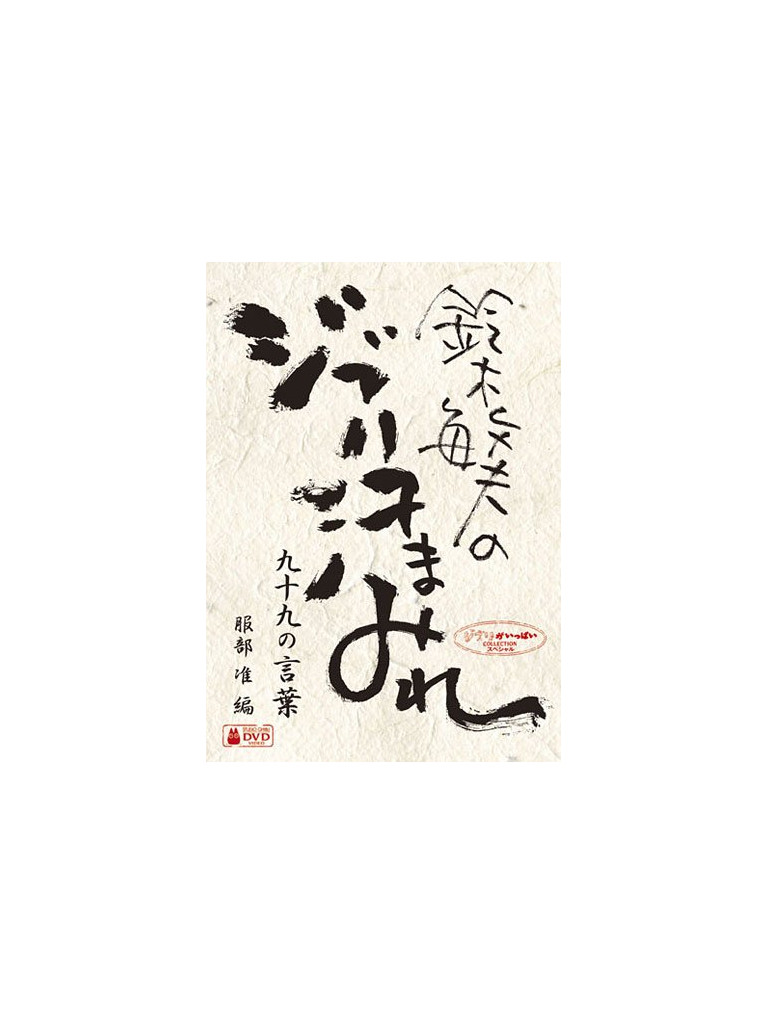 鈴木敏夫の
ジブリ汗まみれ
九十九の言葉
服部准編
ジブリがいっぱい
COLLECTION
スペシャル
STUDIO GHIBLI
DVD
VIDEO